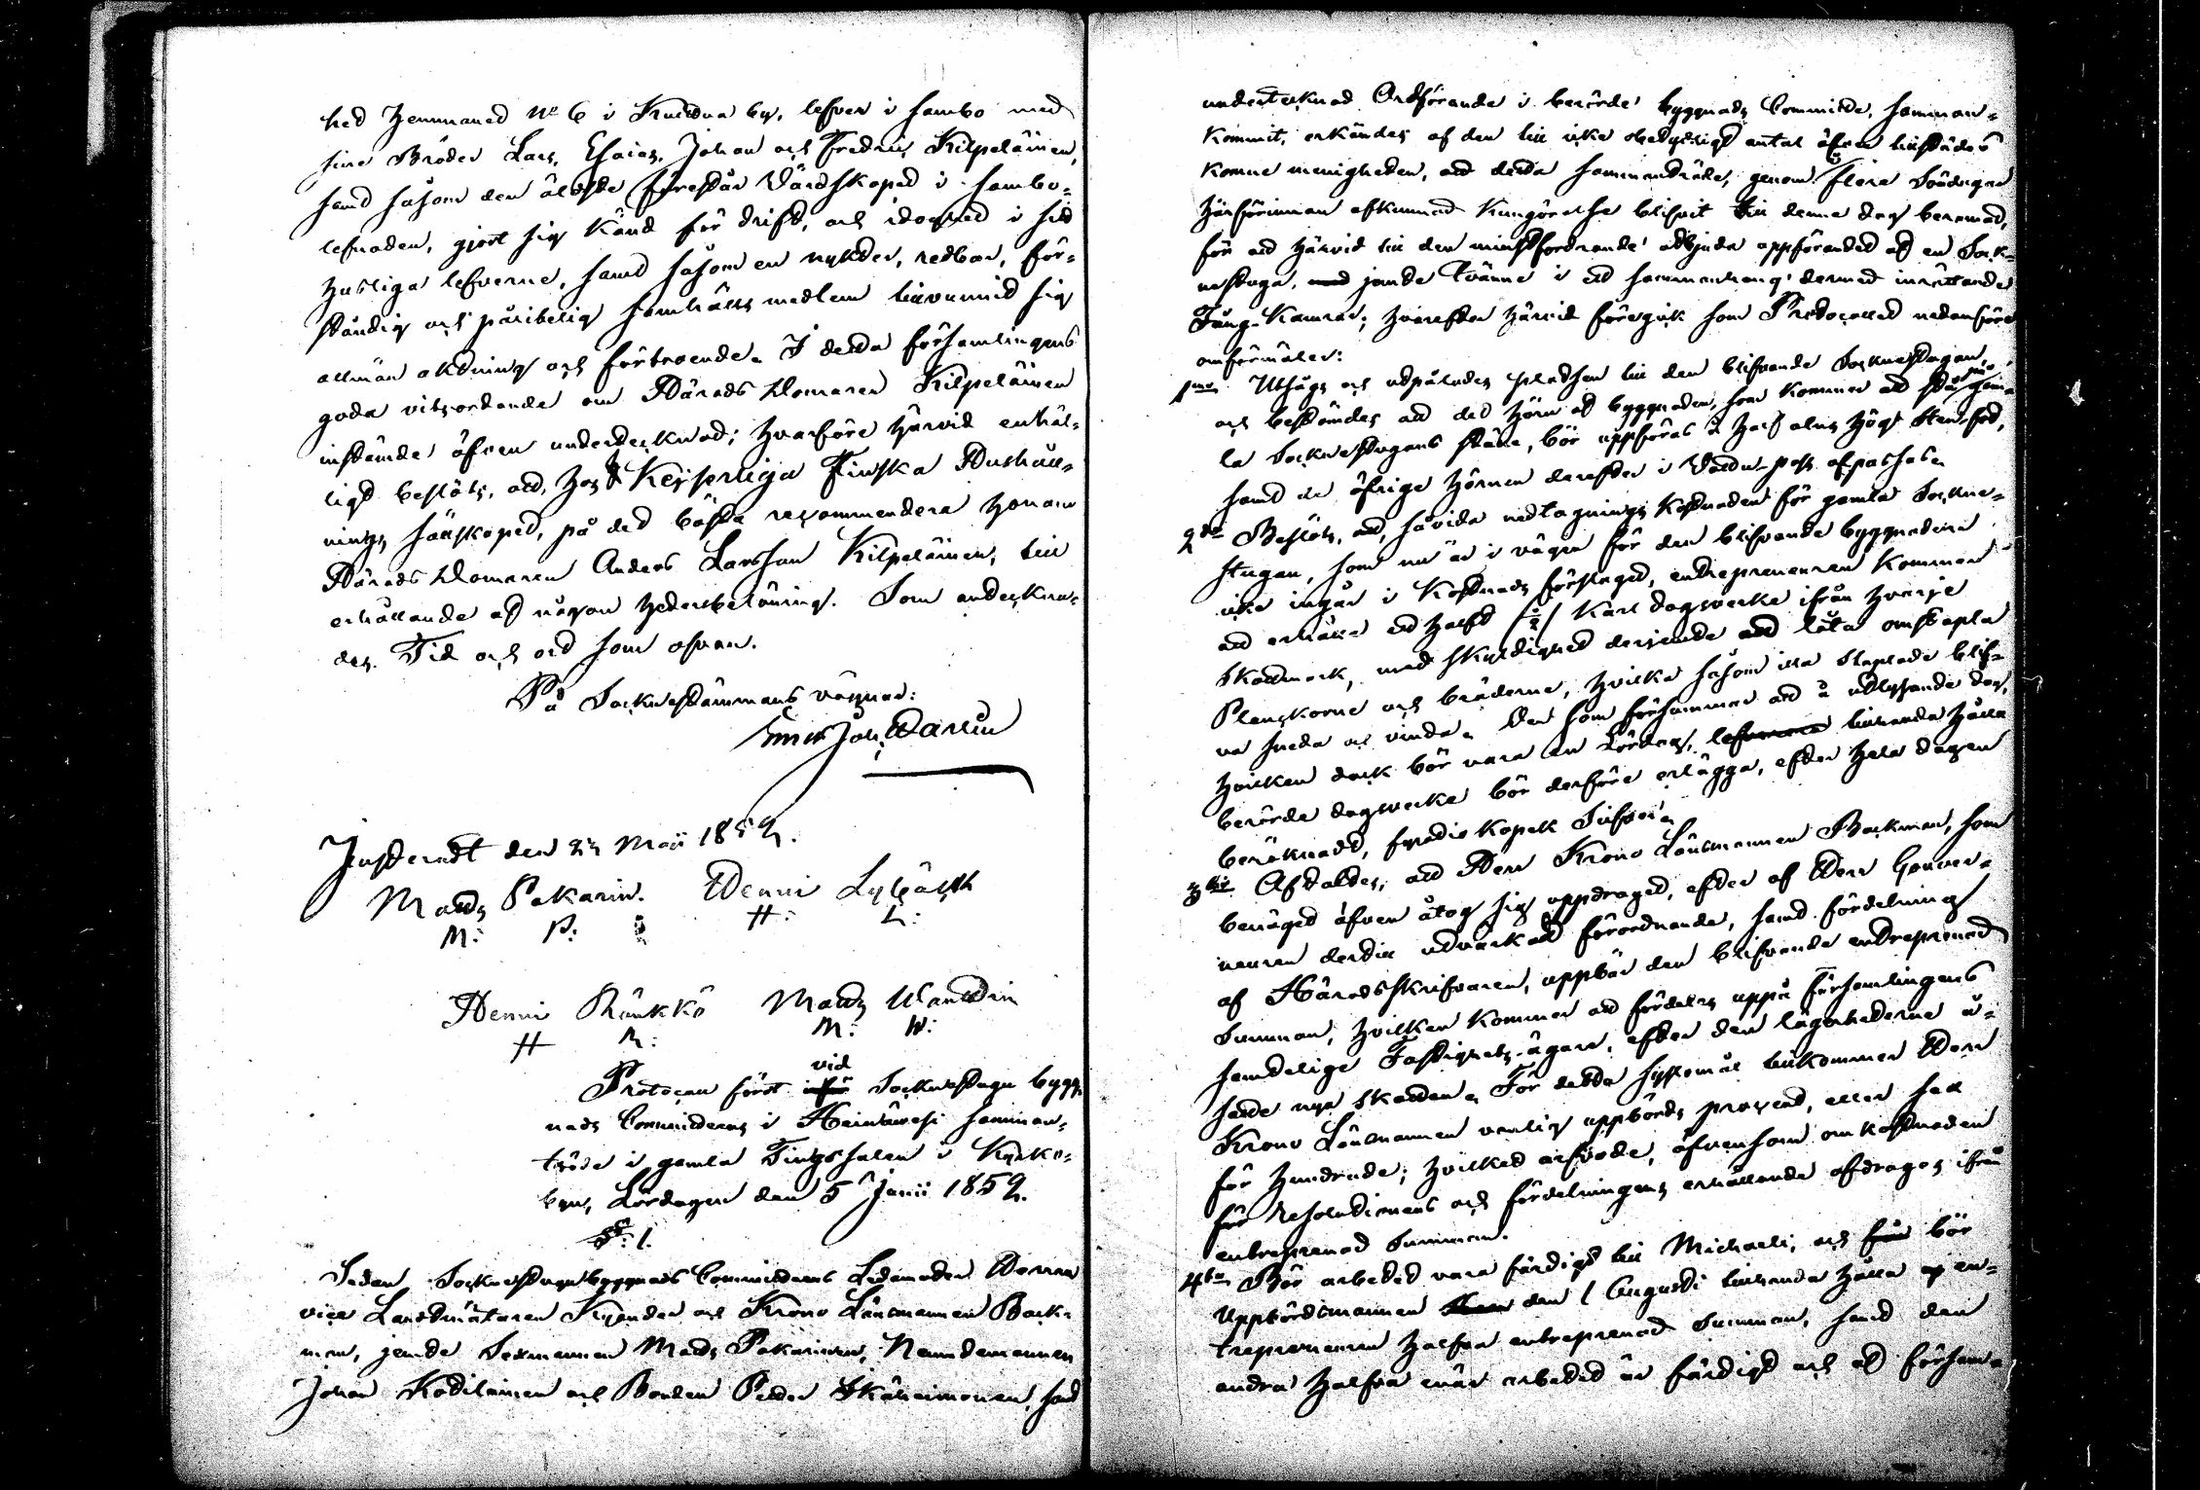 hed hemmaned No 6 i by, lefver i sambo med
sine Bröder Lars, Esaias, Johan och Fredric Kilpeläinen,
samt såsom den äldste förestår Värdskapet i sambo-
lefnaden, gjort sig känd för drift, och idoghed i sit
husliga lefverne, samt såsom en nykter, redbar, för-
ståndig och pålitelig samhälls medlem tillvunnit sig
allmän aktning och förtroende. I detta församlingens
goda vitsordande om Härads Domaren Kilpeläinen
instämde äfven undertecknad; hvarföre härvid enhäl-
ligt beslöts, att, hos Kejserliga Finska Hushåll-
nings sällskapet, på det bästa recommendera honom
Härads Domaren Anders Larsson Kilpeläinen, till
erhållande af någon hedersbelöning. Som anteckna-
des. Tid och ort som ofvan.
På Sockenstämmans vägnar:
Joh:
Justeradt den Maii 1852.
Matts Pakarin. Henric
M: P: H: L:
Henric Räukkö Matts
H R: M: W:
vid
Protocoll fört Sockenstugu bygg-
nads Committens i Heinävesi samman-
träde i gamla Tingssalen i Kyrko-
byn, Lördagen den 5 Junii 1852.
§: 1.
Sedan Sockenstugu byggnads Committens Ledamöter Herrar
vice Landtmätaren och Krono Länsmannen Back-
man, jemte Sexmannen Matts Pakarinen, Nämndemannen
Johan och Bonden Petter samt
undertecknad Ordförande i berörde byggnads Committe, samman-
kommit, erkändes af den till icke obetydligt antal äfven tillstädes
komne menigheten, att detta sammanträde, genom flera Söndagar
härförinnan afkunnad kungörelse blifvit till denna dag beramad,
för att härvid till den minstfordrande utbjuda uppförandet af en Sock-
nestuga, jemte tvänne i ett sammanhang dermed inrättande
Fång-Kamrar; hvarefter härvid föregick som Protocollet nedanföre
omförmäler:
1mo Utsågs och utpålades platsen till den blifvande Socknestugan,
och bestämdes att det hörn af byggnaden, som kommer att stå gam-
la Socknestugans ställe, bör uppföras å half alns hög Stenfot,
samt de öfrige hörnen derefter i Vatten-pass afpassas.
2do Beslöts, att, såvida nedtagnings kostnaden för gamla Sockne-
stugan, som nu är i vägen för den blifvande byggnaden
icke ingår i Kostnads förslaget, entrepreneuren kommer
att erhålla ett halft /½/ Karl dagsverke ifrån hvarje
Skattmark, med skyldighet derjemte att låta omstapla
Planckorne och bräderne, hvilka såsom illa staplade blif-
va sneda och vinda. Den som försummar att å utlysande dag,
hvilken dock bör vara en Lördag, tillhanda hålla
berörde dagsverke bör derföre erlägga, efter hela dagen
beräknadt, fyratio Kopek Silfver.
3tio Aftaltes, att Herr Krono Länsmannen Backman, som
benäget äfven åtog sig uppdraget, efter af Herr Gouver-
neuren dertill utverkadt förordnande, samt fördelning
af Häradsskrifvaren, uppbär den blifvande entreprenad
Summan, hvilken kommer att fördelas uppå Församlingens
samtelige Fastighets-ägare, efter den lägenheterne å-
satte nya Skatten. För detta sysslomål tillkommer Herr
Krono Länsmannen vanlig uppbörds procent, eller sex
för hundrade; hvilket arfvode, äfvensom omkostnaden
för resolutionens och fördelningens erhållande afdrages ifrån
entreprenad Summan.
4to Bör arbetet vara färdigt till Michaeli, och bör
Uppbördsmannen den 1 Augusti tillhanda hålla en-
trepreneuren halfva entreprenad Summan, samt den
andra halfva när arbetet är färdigt och af försam-